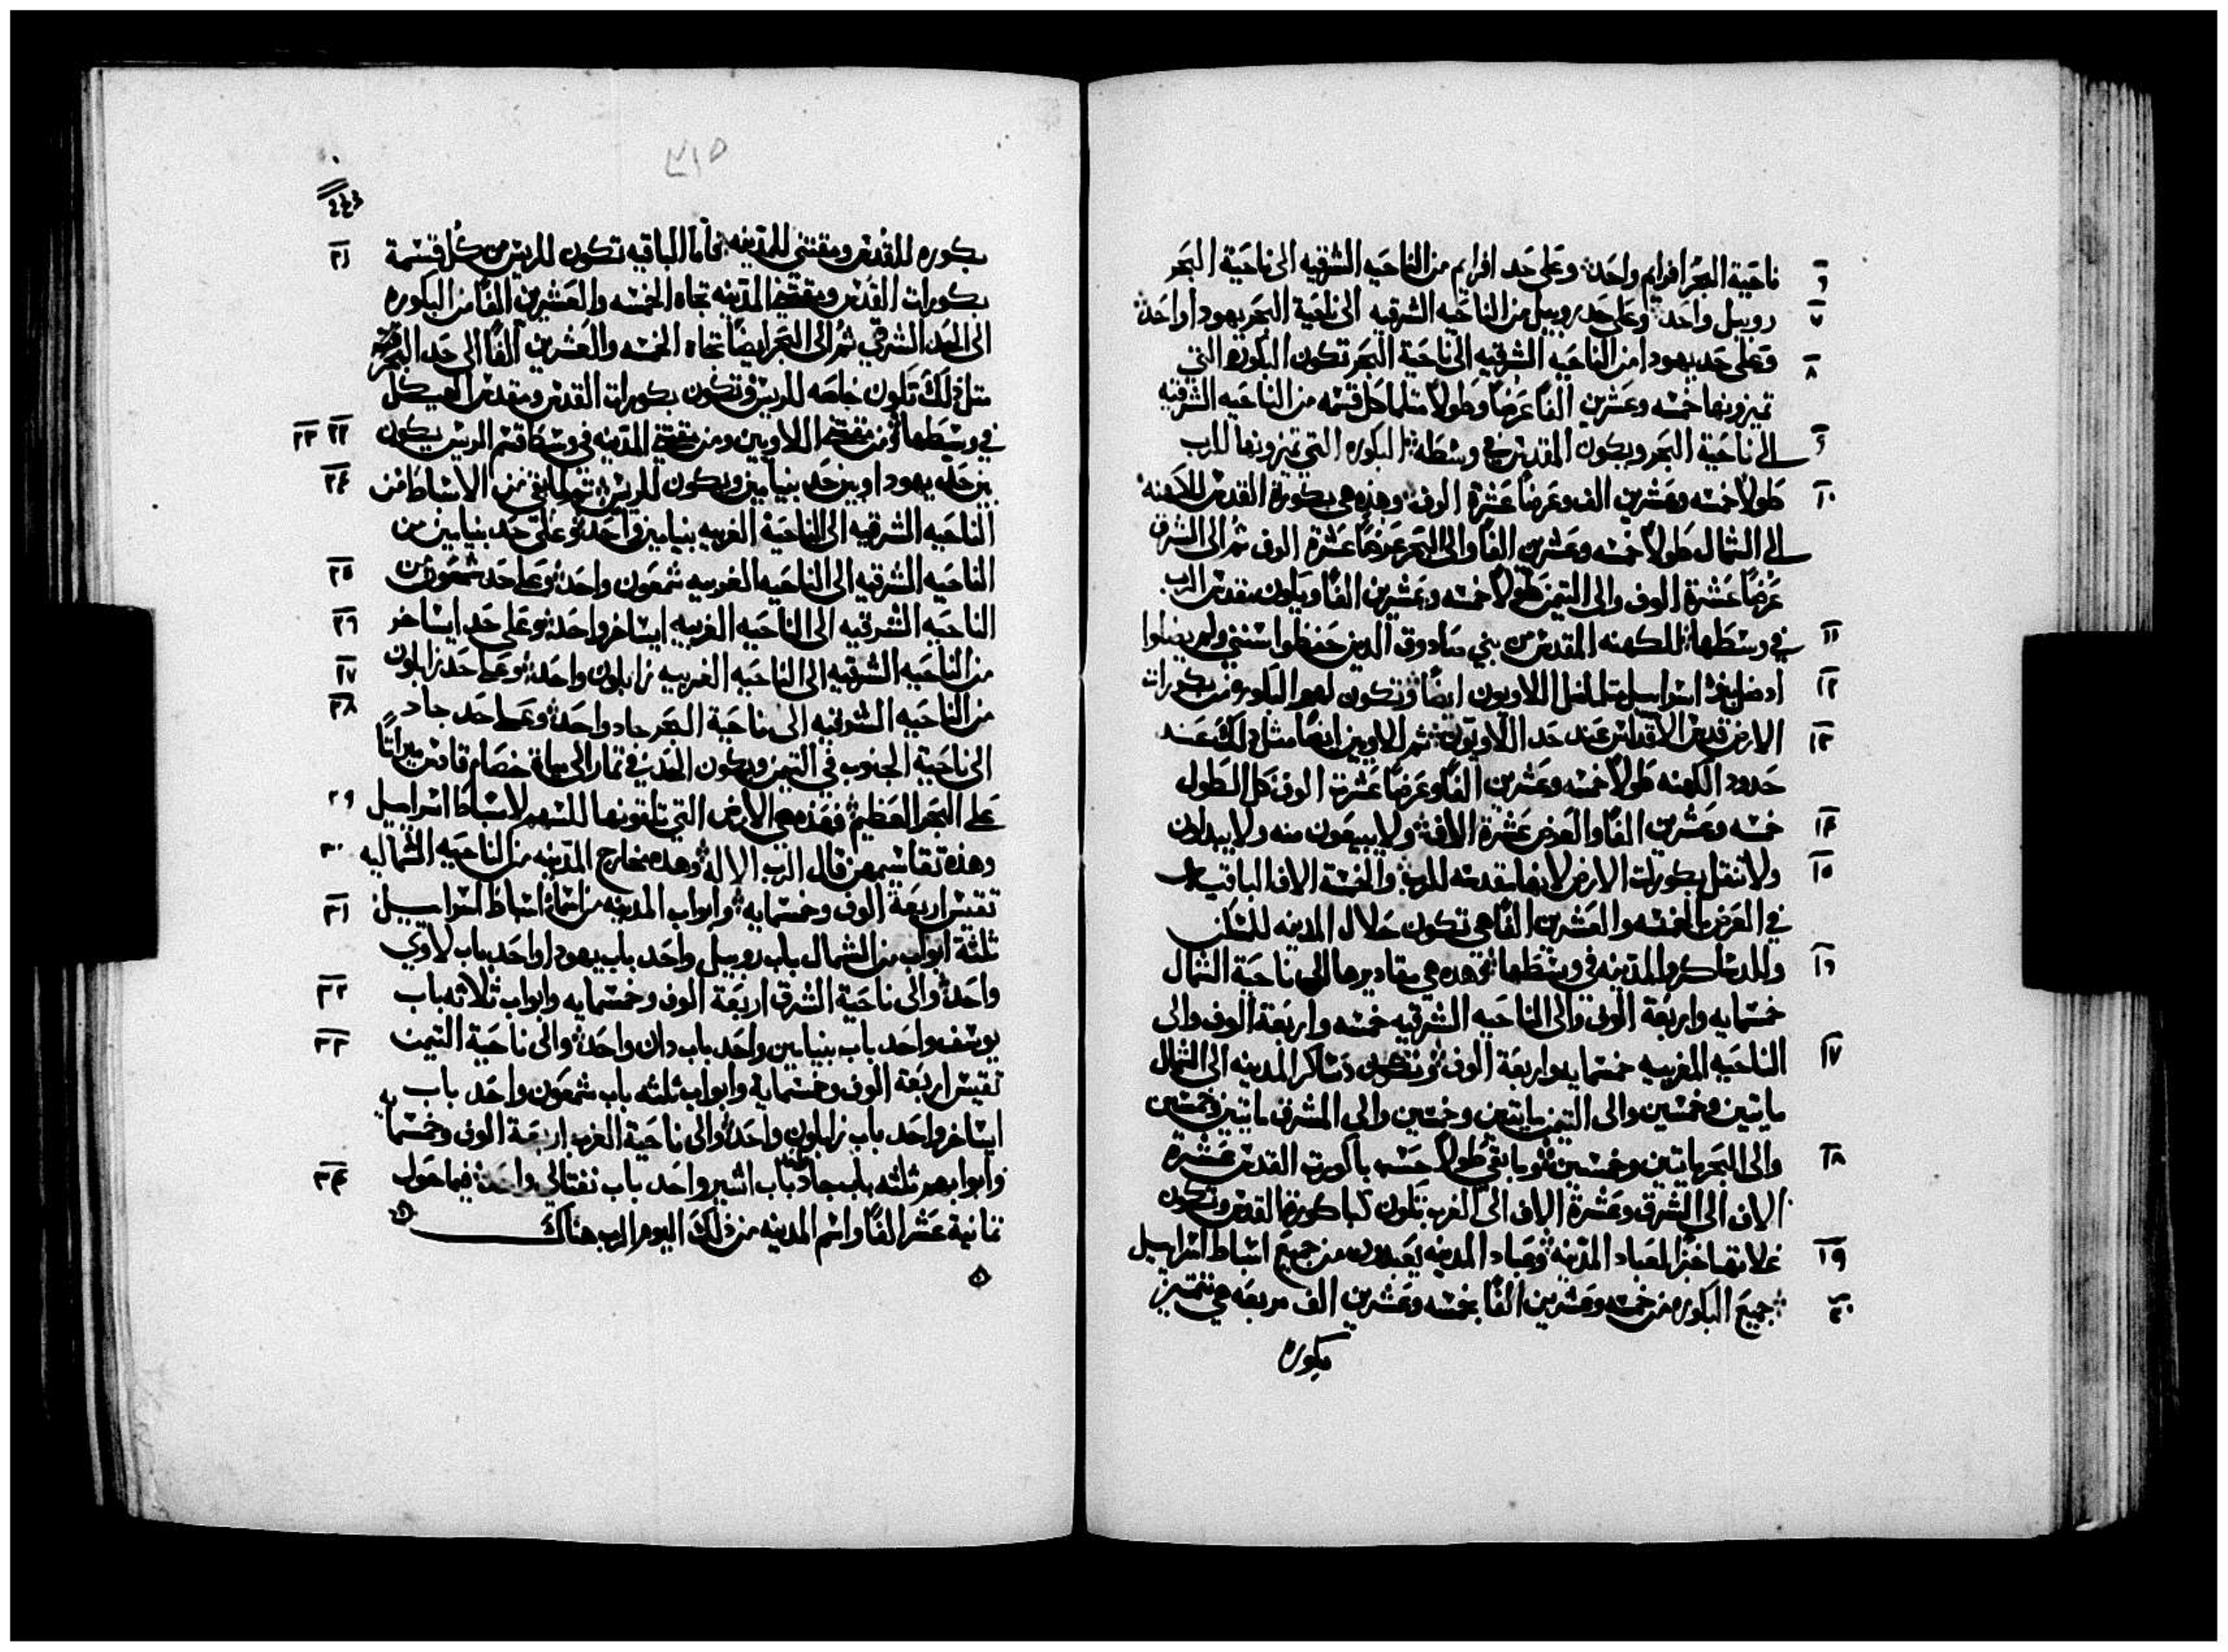 ٦ ناحَية البحَر افرايم واحَد وعَلى حَد افرايم من الناحَيه الشرقيه الى ناحَية البحَر
٧ روبيل واحَد وعَلى حَد روبيل من الناحَيه الشرقيه الى ناحَية البحَر يهودا واحَد
٨ وَعَلى حَد يهودا من الناحَيه الشرقيه الى ناحَية البحَر تكون البكوره التي
تميزونها خمسه وعَشرين الفًا عَرضًا وطَولاً مثلما كل قسمه من الناحَيه الشرقيه
٩ الى ناحَية البحَر ويكون المقدس في وسَطَه البكوره التي تميزونها للرب
١٠ طَولاً خمسه وعَشرين الف وعَرضًا عَشرة الوف وهذه هي بكورة القدس للكهنه
الى الشمال طَولاً خمسه وعَشرين الفًا والى البحَر عَرضًا عَشرة الوف ثم الى الشرق
عَرضًا عَشرة الوف والى التيمن طَولاً خمسه وعَشرين الفًا ويكون مقدس الرب
١١ في وسَطَها للكهنه المقدس من بني صادوق الذين حَفظوا سنني ولم يضلوا
١٢ اذ ضل بنو اسراييل مثلما ضل اللاويون ايضًا وتكون لهم البكوره من بكورات
١٣ الارض قدس الاقداس عَند حَد اللاويون ثم اللاويين ايضًا مثل ذلك عَند
حَدود الكهنه طَولاً خمسه وعَشرين الفًا وعَرضًا عَشرة الوف كل الطول
١٤ خمسه وعَشرين الفًا والعَرض عَشرة الاف ولا يبيعَون منه ولا يبدلون
١٥ ولا تنقل بكورات الارض لانها مقدسه للرب والخمسة الاف الباقيه
في العَرض بالخمسه والعَشرين الفًا هي تكون حَلال المدينه للسكن
١٦ وللدساكر والمدينه في وسَطَها فهذه هي مقاديرها الى ناحَية الشمال
خمسمايه واربعَة الوف والى الناحَيه الشرقيه خمسه واربعَة الوف والى
١٧ الناحَيه المغربيه خمسمايه واربعَة الوف وتكون دساكر المدينه الى الشمال
مايتين وخمسين والى التيمن مايتين وخمسين والى المشرق مايتين وخمسين
١٨ والى البحَر مايتين وخمسين وما بقي طَولاً حَسب باكورت القدس عَشرة
الاف الى الشرق وعَشرة الاف الى الغرب تكون كباكورة القدس وتكون
١٩ غلاتها خبزًا لعَباد المدينه وعَباد المدينه يعَبدون من جميع اسباط اسراييل
٢٠ جميعَ البكوره من خمسه وعَشرين الفًا بخمسه وعَشرين الف مربعَه هي تتميز
بكوره
٣١٥
٢١ بكوره للقدس ومقتني للمدينه فاما الباقيه تكون للريس من كل قسمة
بكورات القدس ومقتني المدينه تجاه الخمسه والعَشرين الفًا من البكوره
الى الحَد الشرقي ثم الى البحَر ايضًا تجاه الخمسه والعَشرين الفًا الى حَد البحَر
مثل ذلك تكون خاصه للريس وتكون بكورات القدس ومقدس الهيكل
٢٢ ٢٣ في وسَطَها ومن مقتني اللاويين ومن مقتني المدينه في وسَط قسم الريس يكون
٢٤ بين حَد يهودا وبين حَد بنيامين ويكون للريس ثم ما بقي من الاسباط من
الناحَيه الشرقيه الى الناحَية الغربيه بنيامين واحَد وعَلى حَد بنيامين من
٢٥ الناحَيه الشرقيه الى الناحَيه الغربيه شمعَون واحَد وعَلى حَد شمعَون من
٢٦ الناحَيه الشرقيه الى الناحَيه الغربيه ايساخر واحَد وعَلى حَد ايساخر
٢٧ من الناحَيه الشرقيه الى الناحَيه الغربيه زابلون واحَد وعَلى حَد زابلون
٢٨ من الناحَيه الشرقيه الى ناحَية البحَر جاد واحَد وعَلى حَد جاد
الى ناحَية الجنوب في التيمن ويكون الحَد من تمار الى مياه خصام قادس ميراثًا
٢٩ عَلى البحَر العَظيم فهذه هي الارض التي تلقونها للسهم لاسباط اسراييل
٣٠ وهذه تقاسيمهن قال الرب الاله وهذه مخارج المدينه من الناحَيه الشماليه
٣١ تقيس اربعَة الوف وخمسمايه وابواب المدينه من اسماء اسباط اسراييل
ثلثة ابواب من الشمال باب روبيل واحَد باب يهودا واحَد باب لاوي
٣٢ واحَد والى ناحَية الشرق اربعَة الوف وخمسمايه وابواب ثلاثه باب
٣٣ يوسف واحَد باب بنيامين واحَد باب دان واحَد والى ناحَية التيمن
تقيس اربعَة الوف وخمسمايه وابواب ثلثه باب شمعَون واحَد باب
ايساخر واحَد باب زابلون واحَد والى ناحَية الغرب اربعَة الوف وخمسمايه
٣٤ وابوابهم ثلثه باب جاد باب اشير واحَد باب نفتالي واحَد فيما حَول
ثمانية عَشر الفًا واسم المدينه من ذلك اليوم الرب هناك